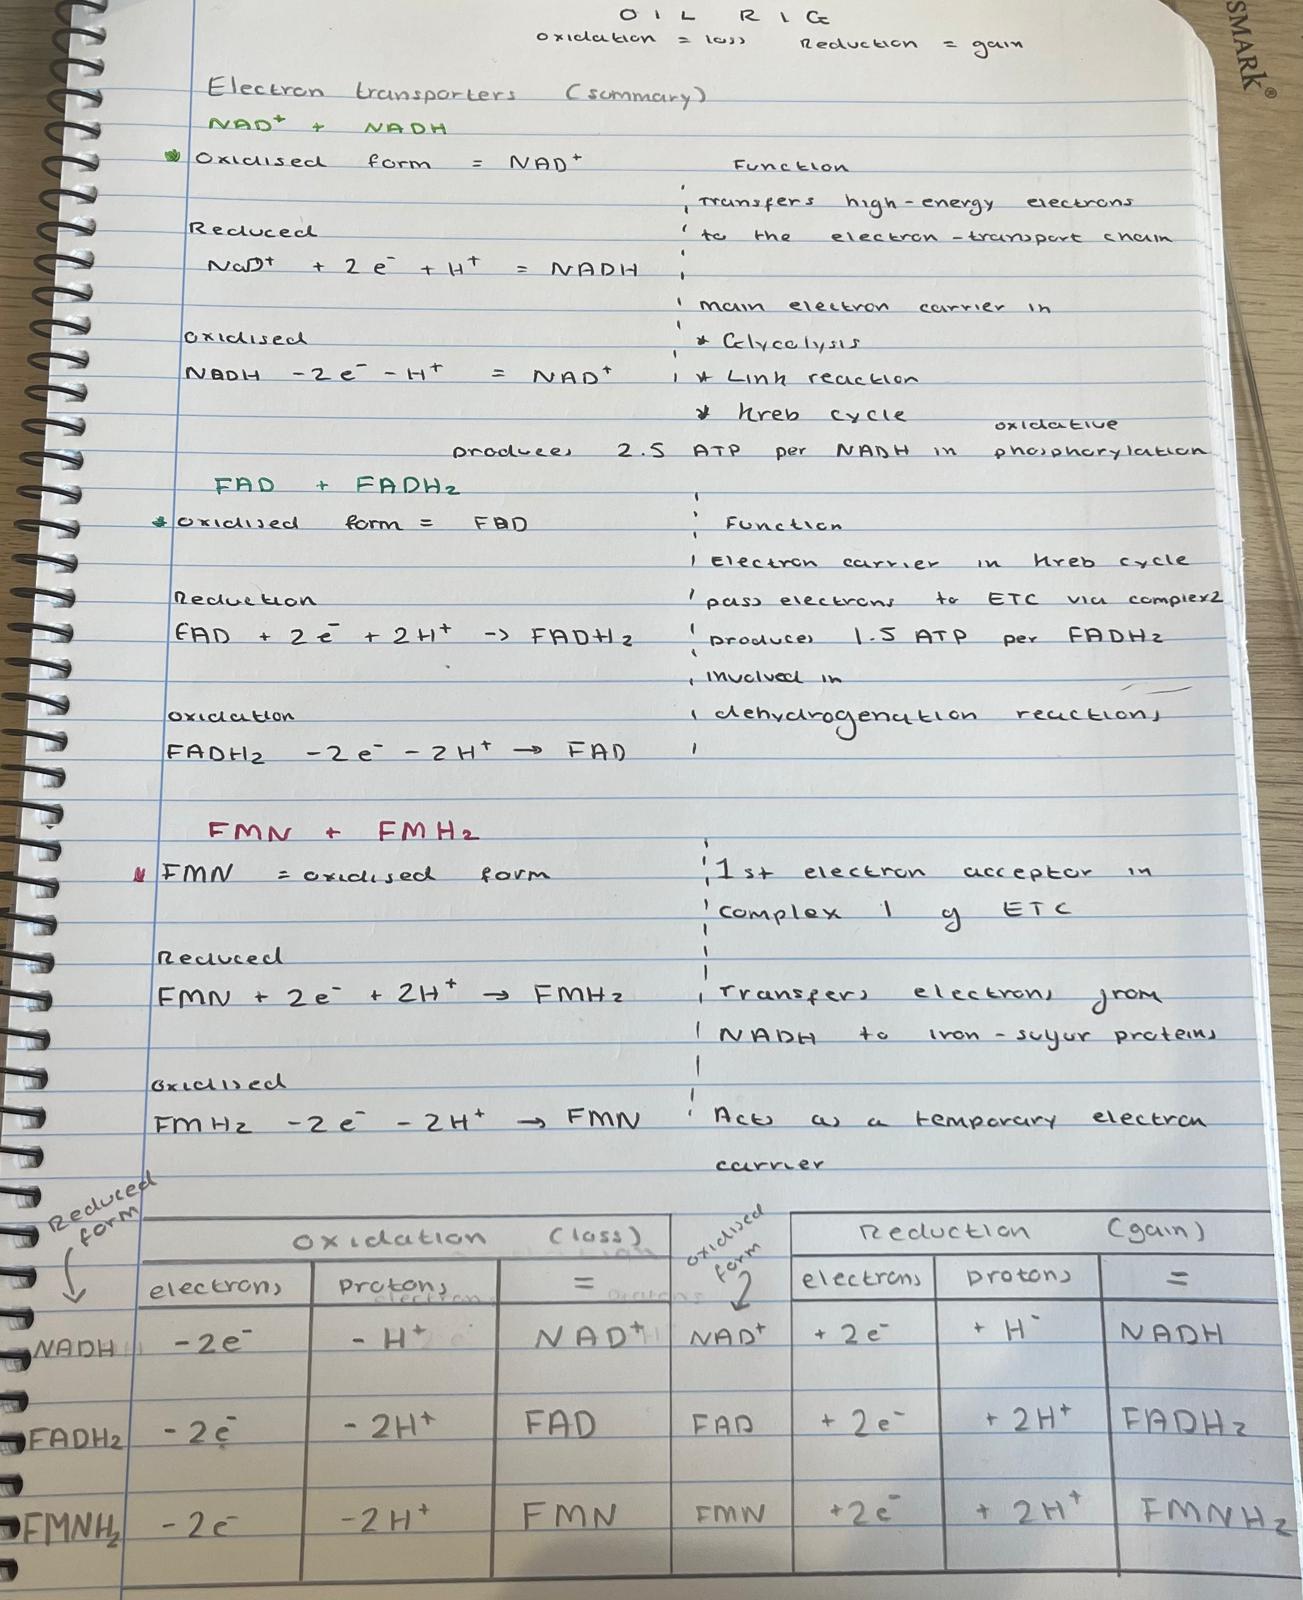 O I L R I G
oxidation = loss Reduction = gain
SMARK®
Electron transporters (summary)
NAD⁺ + NADH
* Oxidised form = NAD⁺
Function
Transfers high-energy electrons
to the electron-transport chain
Reduced
NaD⁺ + 2 e⁻ + H⁺ = NADH
main electron carrier in
* Glycolysis
* Link reaction
* Kreb cycle
oxidised
NADH - 2 e⁻ - H⁺ = NAD⁺
produces 2.5 ATP per NADH in oxidative phosphorylation
FAD + FADH₂
* oxidised form = FAD
Function
Electron carrier in Kreb cycle
pass electrons to ETC via complex 2
produces 1.5 ATP per FADH₂
involved in
dehydrogenation reactions
Reduction
FAD + 2 e⁻ + 2H⁺ -> FADH₂
oxidation
FADH₂ - 2 e⁻ - 2 H⁺ → FAD
FMN + FMH₂
* FMN = oxidised form
1st electron acceptor in
complex 1 of ETC
Reduced
FMN + 2e⁻ + 2H⁺ → FMH₂
Transfers electrons from
NADH to iron-sulfur proteins
oxidised
FMH₂ - 2 e⁻ - 2H⁺ → FMN
Acts as a temporary electron
carrier
Reduced form
oxidation (loss)
oxidised form
Reduction (gain)
electrons protons =
electrons protons =
NADH -2e⁻ - H⁺ NAD⁺ NAD⁺ + 2e⁻ + H⁻ NADH
FADH₂ -2e⁻ - 2H⁺ FAD FAD + 2e⁻ + 2H⁺ FADH₂
FMNH₂ -2e⁻ -2H⁺ FMN FMN +2e⁻ + 2H⁺ FMNH₂